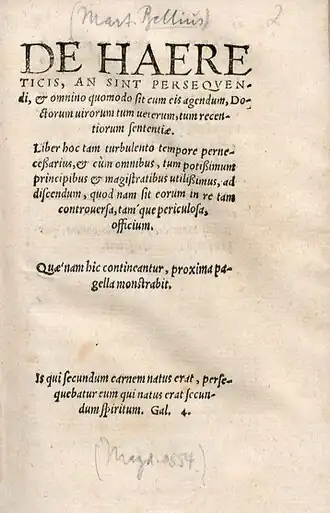 (Mart. Bellius)
2
DE HAERE
TICIS, AN SINT PERSEQVEN-
di, & omnino quomodo sit cum eis agendum, Do-
ctorum uirorum tum ueterum, tum recen-
tiorum sententiæ.
Liber hoc tam turbulento tempore perne-
ceßarius, & cùm omnibus, tum potißimum
principibus & magistratibus utilißimus, ad
discendum, quod nam sit eorum in re tam
controuersa, tam'que periculosa,
officium.
Quæ'nam hic contineantur, proxima pa-
gella monstrabit.
Is qui secundum carnem natus erat, perse-
quebatur eum qui natus erat secun-
dum spiritum. Gal. 4.
(Magd. 1554.)